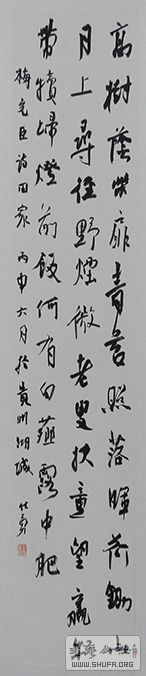 高樹蔭柴扉青苔照落暉荷鋤山
月上尋徑野煙微老叟扶童望羸牛
帶犢歸燈前飯何有白薤露中肥
梅堯臣詩田家 丙申六月於貴州湖城
WWW.SHUFA.ORG